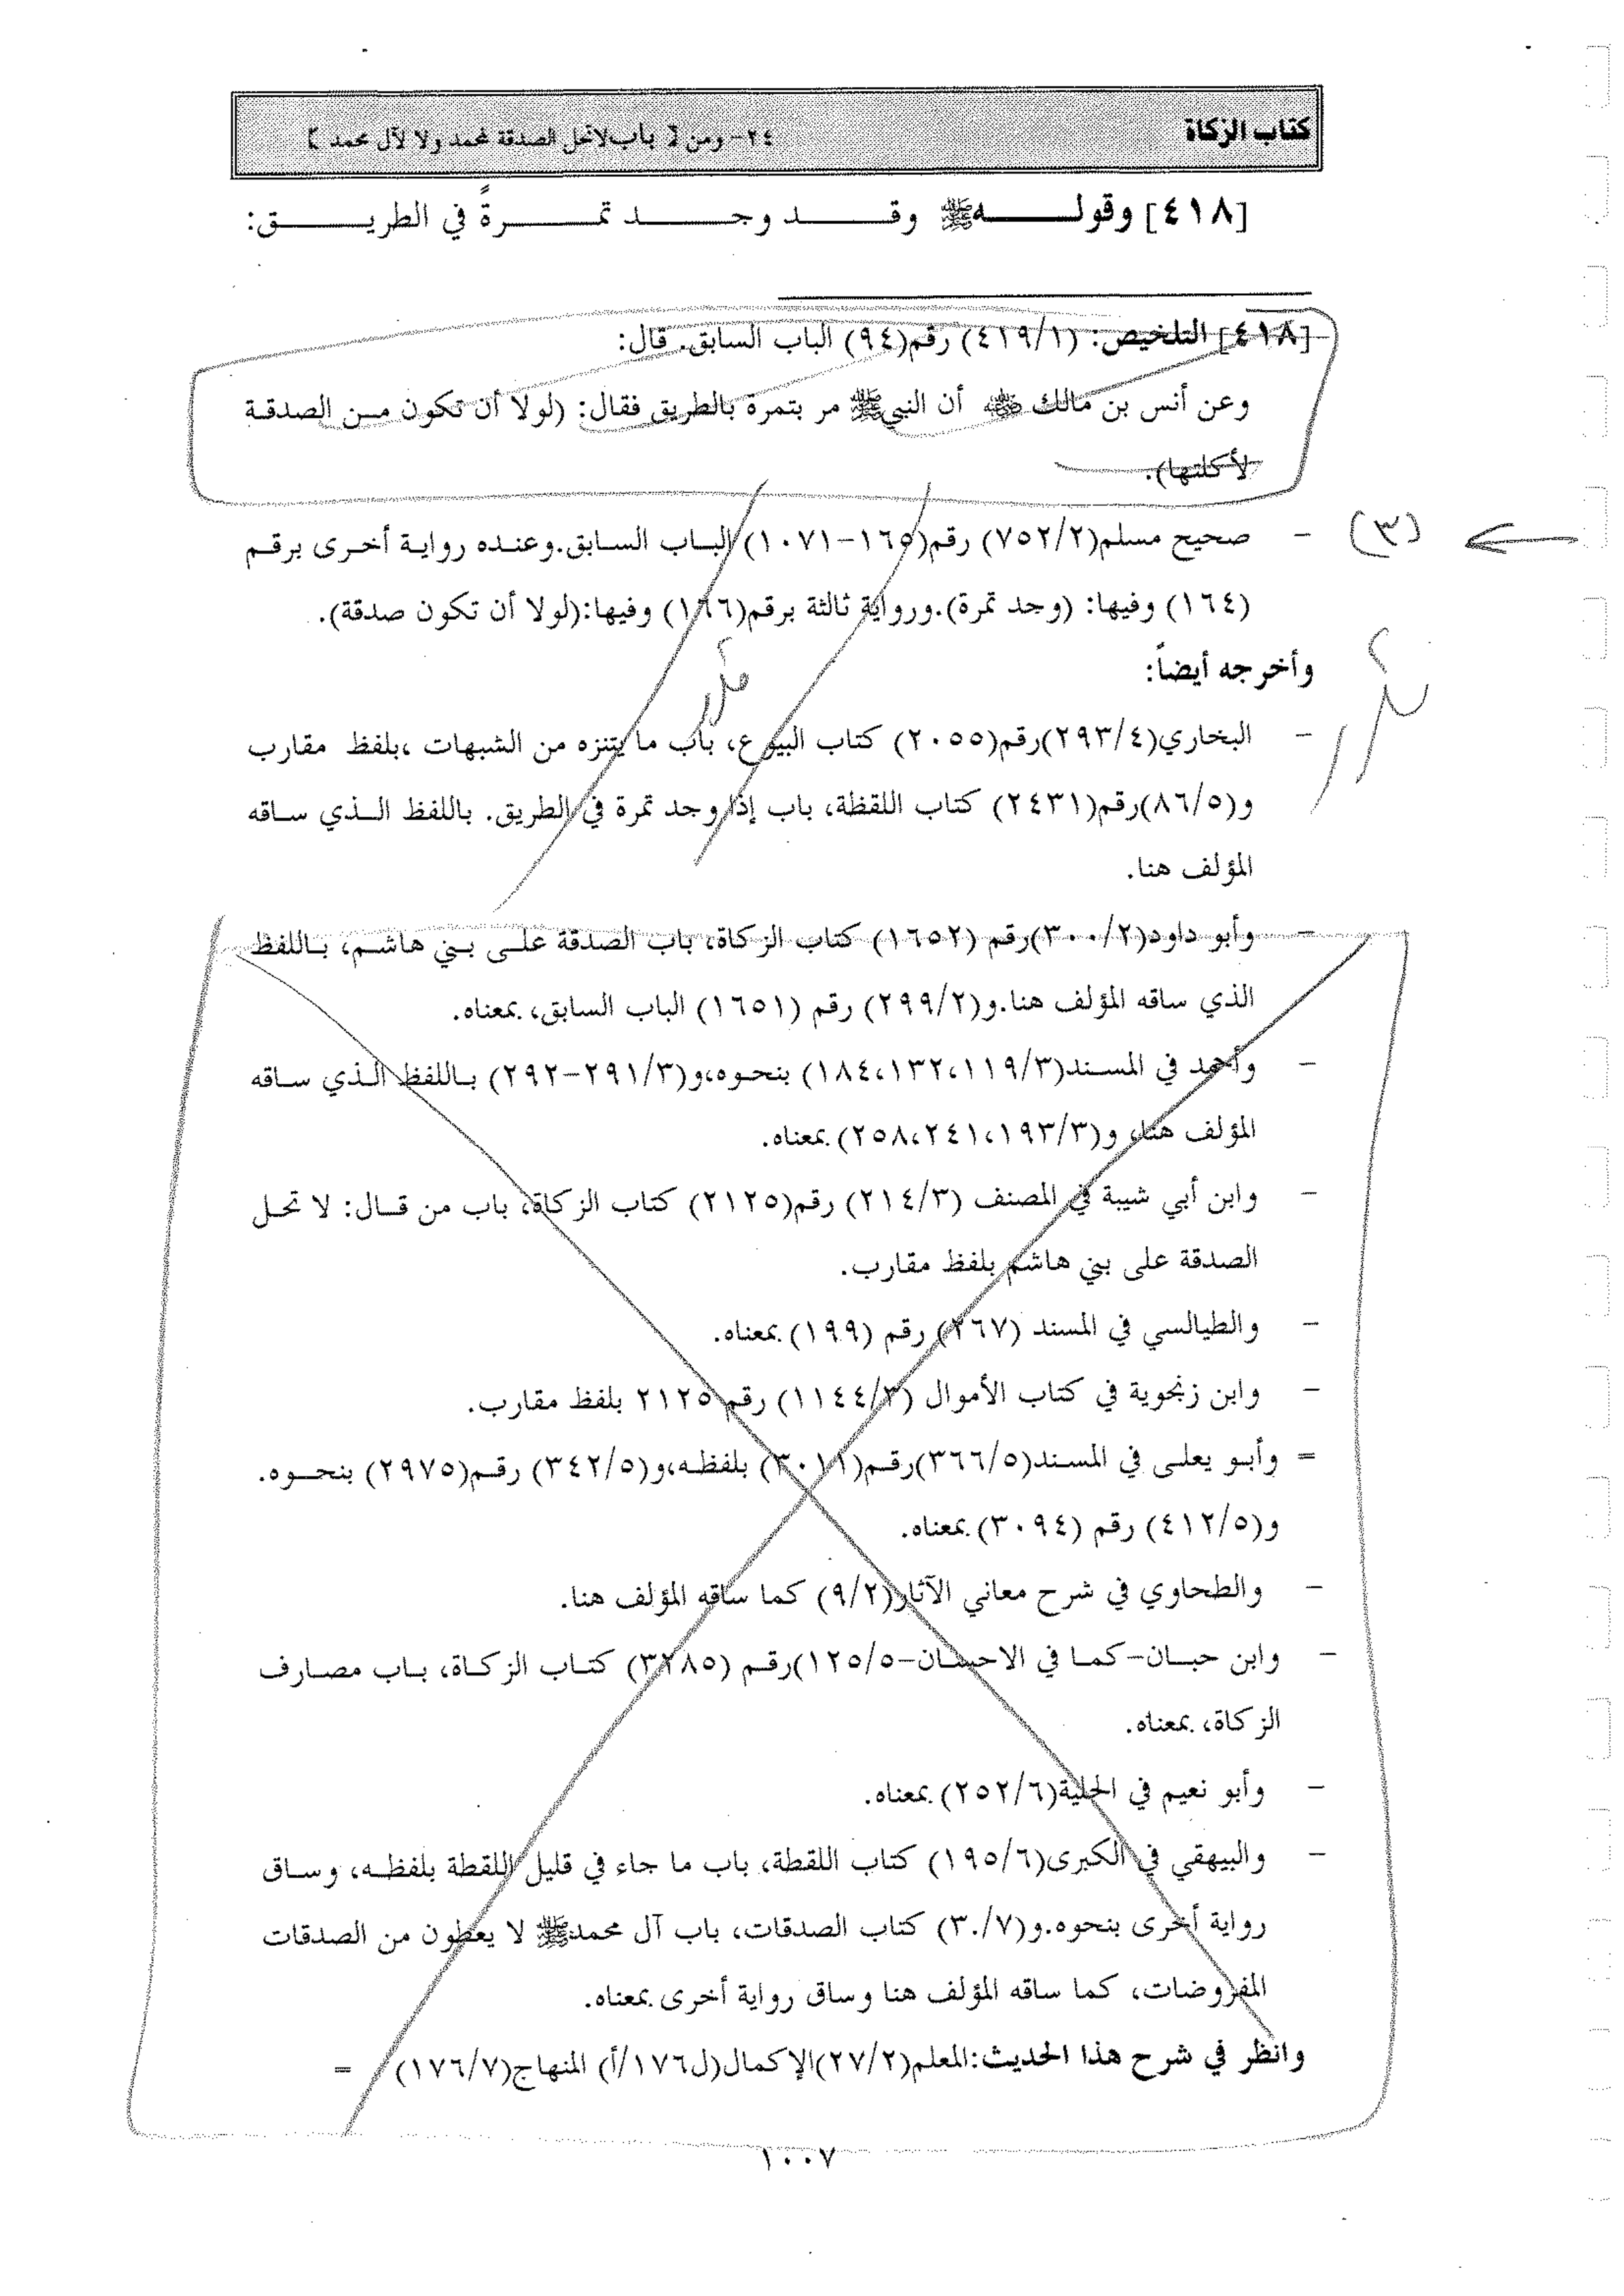 كتاب الزكاة
٢٤- ومن [ باب لاتحل الصدقة لمحمد ولا لآل محمد ]
[٤١٨] وقولهﷺ وقد وجد تمرةً في الطريق:
[٤١٨] التلخيص: (٤١٩/١) رقم(٩٤) الباب السابق. قال:
وعن أنس بن مالك ﷺ أن النبيﷺ مر بتمرة بالطريق فقال: (لولا أن تكون من الصدقة
لأكلتها).
(٣)
- صحيح مسلم(٧٥٢/٢) رقم(١٦٥-١٠٧١) الباب السابق.وعنده رواية أخرى برقم
(١٦٤) وفيها: (وجد تمرة).ورواية ثالثة برقم(١٦٦) وفيها:(لولا أن تكون صدقة).
وأخرجه أيضاً:
- البخاري(٢٩٣/٤)رقم(٢٠٥٥) كتاب البيوع، باب ما يتنزه من الشبهات ،بلفظ مقارب
و(٨٦/٥)رقم(٢٤٣١) كتاب اللقظة، باب إذا وجد تمرة في الطريق. باللفظ الذي ساقه
المؤلف هنا.
- وأبو داود(٣٠٠/٢)رقم (١٦٥٢) كتاب الزكاة، باب الصدقة على بني هاشم، باللفظ
الذي ساقه المؤلف هنا.و(٢٩٩/٢) رقم (١٦٥١) الباب السابق، بمعناه.
- وأحمد في المسند(١١٩/٣،١٣٢،١٨٤) بنحوه،و(٢٩١/٣-٢٩٢) باللفظ الذي ساقه
المؤلف هنا، و(١٩٣/٣،٢٤١،٢٥٨) بمعناه.
- وابن أبي شيبة في المصنف (٢١٤/٣) رقم(٢١٢٥) كتاب الزكاة، باب من قال: لا تحل
الصدقة على بني هاشم بلفظ مقارب.
- والطيالسي في المسند (٢٦٧) رقم (١٩٩) بمعناه.
- وابن زنجوية في كتاب الأموال (١١٤٤/٣) رقم ٢١٢٥ بلفظ مقارب.
= وأبو يعلى في المسند(٣٦٦/٥)رقم(٣٠١١) بلفظه،و(٣٤٢/٥) رقم(٢٩٧٥) بنحوه.
و(٤١٢/٥) رقم (٣٠٩٤) بمعناه.
- والطحاوي في شرح معاني الآثار(٩/٢) كما ساقه المؤلف هنا.
- وابن حبان-كما في الاحسان-١٢٥/٥)رقم (٣٢٨٥) كتاب الزكاة، باب مصارف
الزكاة، بمعناه.
- وأبو نعيم في الحلية(٢٥٢/٦) بمعناه.
- والبيهقي في الكبرى(١٩٥/٦) كتاب اللقطة، باب ما جاء في قليل اللقطة بلفظه، وساق
رواية أخرى بنحوه.و(٣٠/٧) كتاب الصدقات، باب آل محمدﷺ لا يعطون من الصدقات
المفروضات، كما ساقه المؤلف هنا وساق رواية أخرى بمعناه.
وانظر في شرح هذا الحديث:المعلم(٢٧/٢)الإكمال(ل١٧٦/أ) المنهاج(١٧٦/٧) =
١٠٠٧